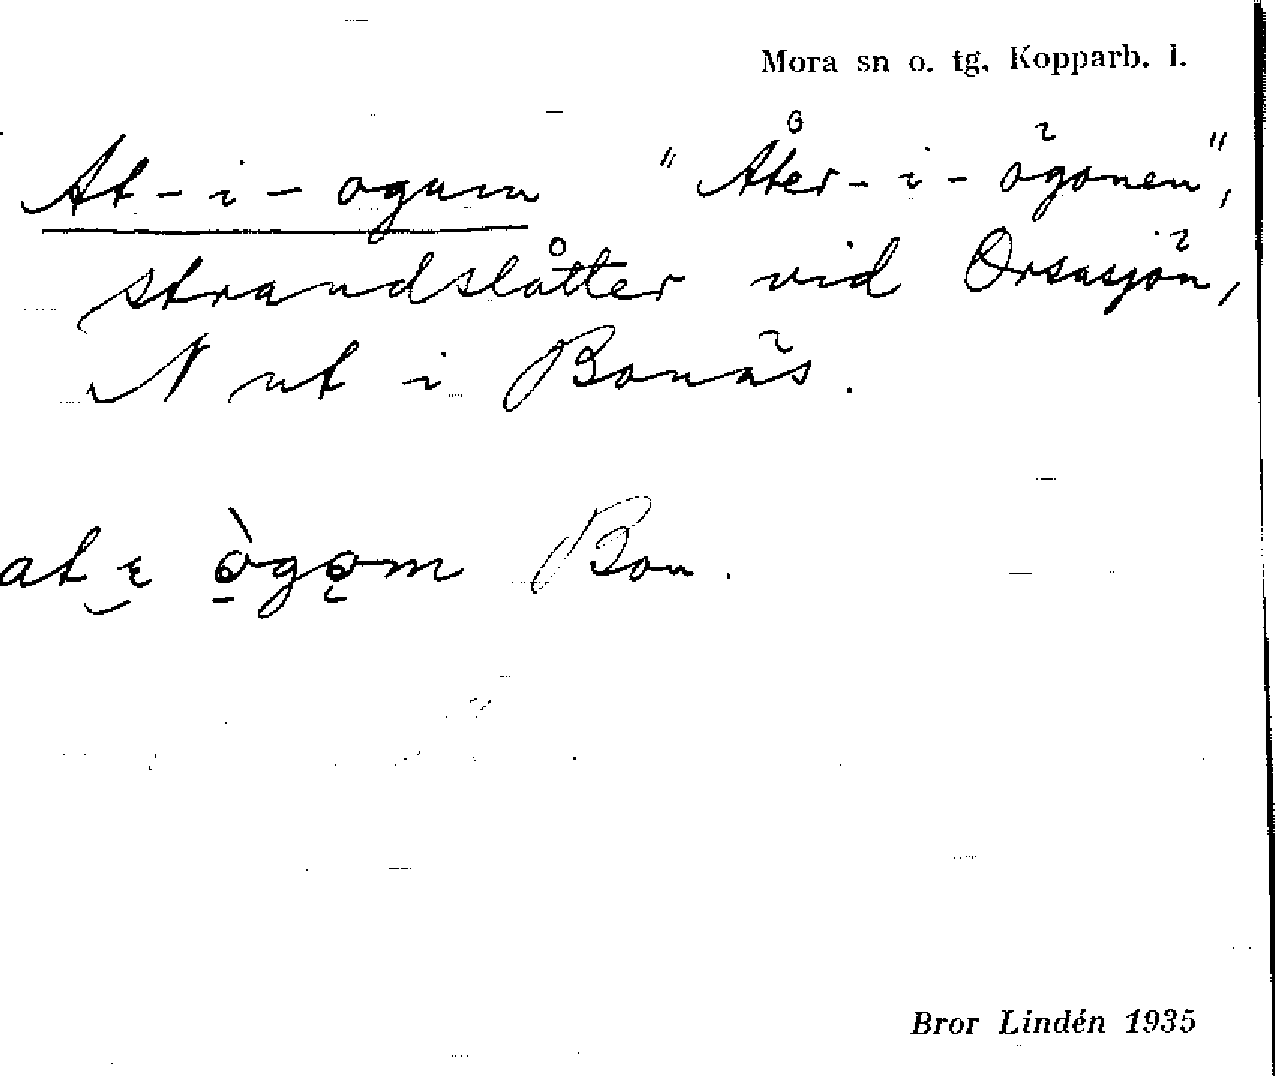 Mora sn o. tg. Kopparb. l.
At-i-ogum "Åter-i-ögonen",
strandslåtter vid Orsasjön,
N ut i Bonäs.
Bon.
Bror Lindén 1935